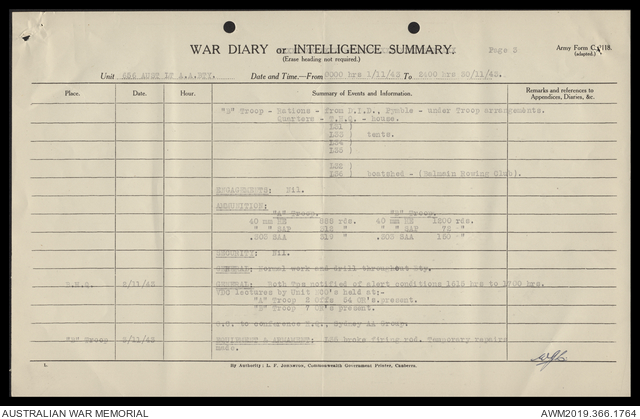 WAR DIARY or INTELLIGENCE SUMMARY. Page 2
(Erase heading not required.)
Army Form C.2118.
(adapted.)
Unit 256 AUST LT A.A. BTY. Date and Time.—From 0000 hrs 1/11/43 To 2400 hrs 30/11/43.
Place. Date. Hour. Summary of Events and Information. Remarks and references to Appendices, Diaries, &c.
"B" Troop - Rations - from D.I.D., Pymble - under Troop arrangements.
Quarters - T.H.Q. - house.
L31 )
L33 ) tents.
L34 )
L35 )
L32 )
L36 ) boatshed - (Balmain Rowing Club).
ENGAGEMENTS: Nil.
AMMUNITION:
"A" Troop. "B" Troop.
40 mm HE rds. 40 mm HE rds.
" " SAP " " " SAP "
.303 SAA " .303 SAA "
SECURITY: Nil.
GENERAL: Normal work and drill throughout Bty.
B.H.Q. 2/11/43 GENERAL: Both Tps notified of alert conditions 1615 hrs to 1700 hrs.
lectures by Unit held at:-
"A" Troop 2 Offs 54 OR's present.
"B" Troop 7 OR's present.
O.C. to conference H.Q., Sydney AA Group.
"B" Troop 3/11/43 EQUIPMENT & ARMAMENT: L36 broke firing rod. Temporary repairs
made.
By Authority: L. F. Johnston, Commonwealth Government Printer, Canberra.
AUSTRALIAN WAR MEMORIAL AWM2019.366.1764